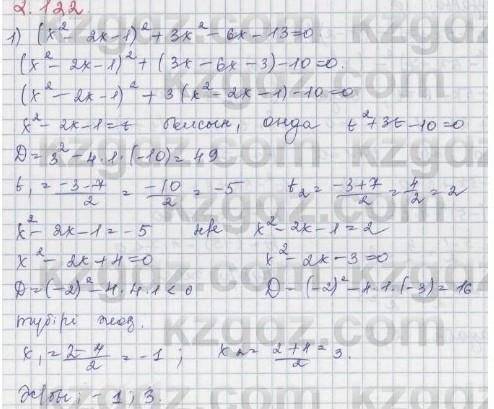 2.122
1) (x² - 2x - 1)² + 3x² - 6x - 13 = 0
(x² - 2x - 1)² + (3x - 6x - 3) - 10 = 0.
(x² - 2x - 1)² + 3(x² - 2x - 1) - 10 = 0
x² - 2x - 1 = t болсын, онда t² + 3t - 10 = 0
D = 3² - 4·1·(-10) = 49
t₁ = (-3-7)/2 = -10/2 = -5 t₂ = (-3+7)/2 = 4/2 = 2
x² - 2x - 1 = -5 не x² - 2x - 1 = 2
x² - 2x + 4 = 0 x² - 2x - 3 = 0
D = (-2)² - 4·4·1 < 0 D = (-2)² - 4·1·(-3) = 16
түбірі жоқ.
x₁ = (2-4)/2 = -1; x₂ = (2+4)/2 = 3.
Ж/бы: -1; 3.
kzgdz.com